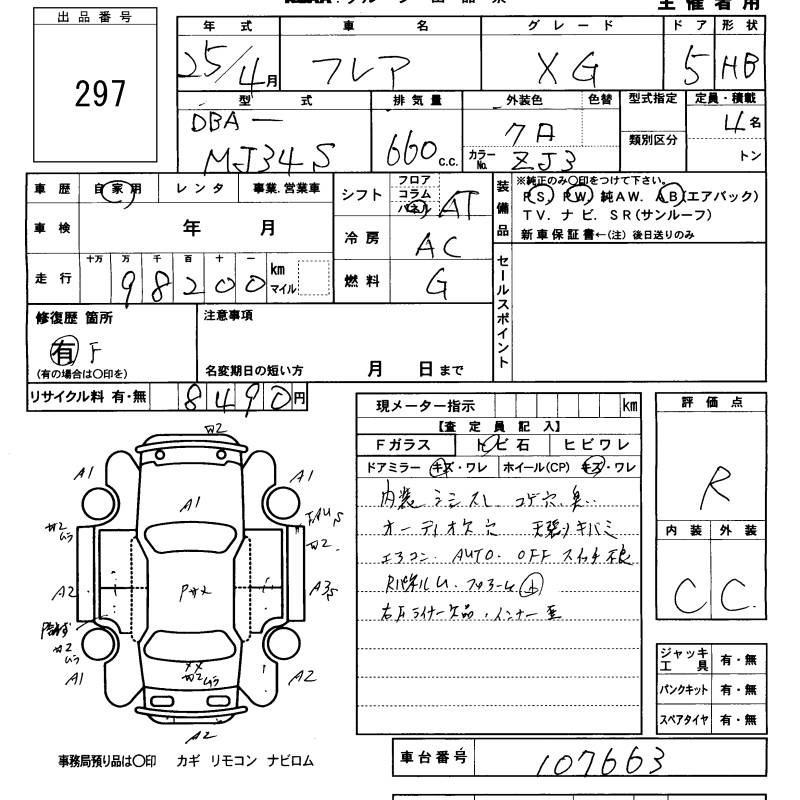 出品番号
297
年式 車名 グレード ドア 形状
25/4月 フレア XG 5 HB
型式 排気量 外装色 色替 型式指定 定員・積載
DBA－ MJ34S 660 c.c. カラーNo. ZJ3 類別区分 4名
トン
車歴 自家用 レンタ 事業.営業車
車検 年 月
走行 十万 万 千 百 十 一
98200 km マイル
シフト フロア コラム パネル AT
冷房 AC
燃料 G
装備品 ※純正のみ○印をつけて下さい。
PS. PW. 純AW. AB(エアバック)
TV. ナビ. SR(サンルーフ)
新車保証書←(注) 後日送りのみ
セールスポイント
修復歴 箇所
有 F
(有の場合は○印を)
注意事項
名変期日の短い方 月 日まで
リサイクル料 有・無 8490円
現メーター指示 km
【査定員記入】
Fガラス トビ石 ヒビワレ
ドアミラー キズ・ワレ ホイール(CP) キズ・ワレ
内装 シミスレ コゲ穴 臭
オーディオ欠 穴 天張りキバミ
エアコン. AUTO. OFF スイッチ不良
評価点
R
内装 外装
C C
ジャッキ 工具 有・無
パンクキット 有・無
スペアタイヤ 有・無
A1 A1
A1
A2
A1 A2
A2
事務局預り品は○印 カギ リモコン ナビロム
車台番号 107663